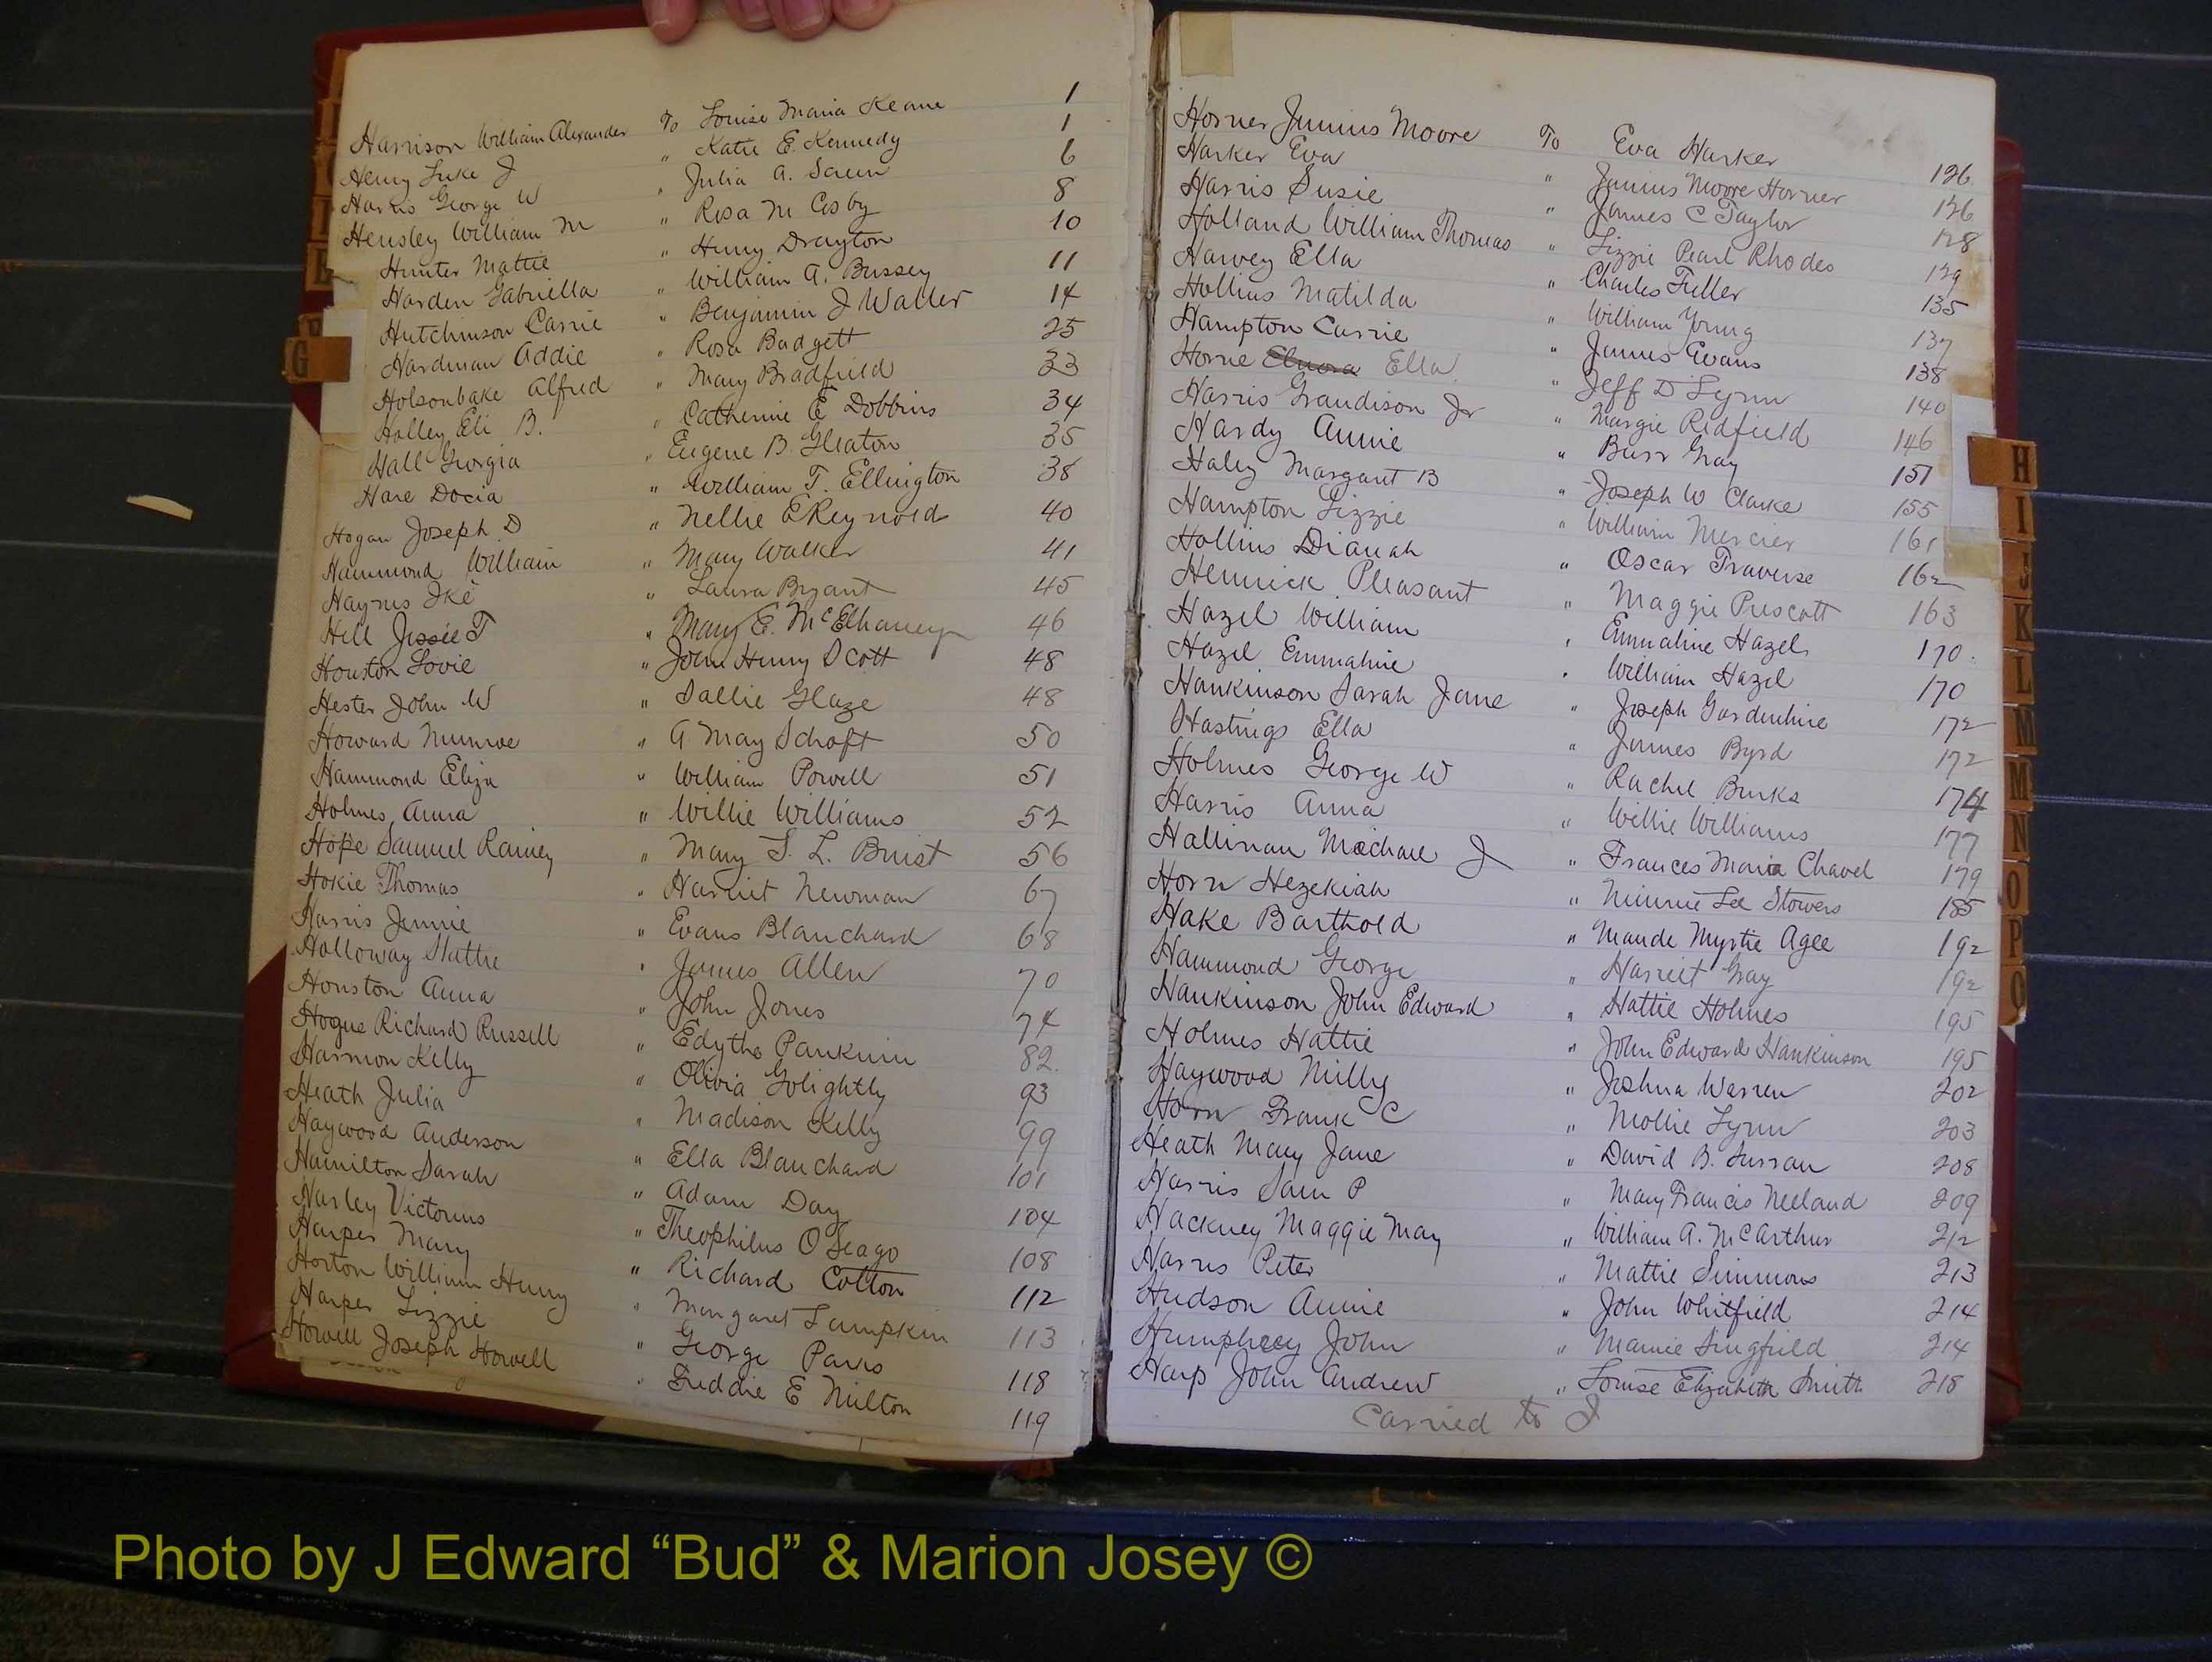 Harrison William Alexander To Louise Maria Keane 1
Henry Luke J " Katie E. Kennedy 1
Harris George W " Julia A. 6
Hensley William M " Rosa M Cosby 8
Hunter Mattie " Henry Drayton 10
Harden Gabriella " William A. Bussey 11
Hutchinson Carrie " Benjamin J Waller 14
Hardman Addie " Rosa Badgett 25
Holsonbake Alfred " Mary Bradfield 33
Holley Eli B. " Catherine E Dobbins 34
Hall Georgia " Eugene B. Gleaton 35
Hare Docia " William T. Ellington 38
Hogan Joseph D " Nellie E Reynold 40
Hammond William " Mary Walker 41
Haynes Ike " Laura Bryant 45
Hill Jessie T " Mary E. McElhaney 46
Houston Lovie " John Henry Scott 48
Hester John W " Sallie Glaze 48
Howard Munroe " A. May Schoft 50
Hammond Eliza " William Powell 51
Holmes Anna " Willie Williams 52
Hope Samuel Rainey " Mary S. L. Buist 56
Hokie Thomas " Harriet Newman 67
Harris Jennie " Evans Blanchard 68
Holloway Hattie " James Allen 70
Houston Anna " John Jones 74
Hogue Richard Russell " Edythe Panknin 82
Harmon Kelly " Olivia Golightly 93
Heath Julia " Madison Kelly 99
Haywood Anderson " Ella Blanchard 101
Hamilton Sarah " Adam Day 104
Harley Victorius " Theophilus O Seago 108
Harper Mary " Richard Colton 112
Horton William Henry " Margaret Lumpkin 113
Harper Lizzie " George Parks 118
Howell Joseph Howell " Freddie E Milton 119
Horner Junius Moore To Eva Harker 126
Harker Eva " Junius Moore Horner 126
Harris Susie " James C Taylor 128
Holland William Thomas " Lizzie Pearl Rhodes 129
Harvey Ella " Charles Fuller 135
Hollins Matilda " William Young 137
Hampton Carrie " James Evans 138
Horne Elnora Ella " Jeff D Lynn 140
Harris Grandison Jr " Margie Redfield 146
Hardy Annie " Burr Gray 151
Haley Margaret B " Joseph W Clarke 155
Hampton Lizzie " William Mercier 161
Hollins Dianah " Oscar Traverse 162
Hennick Pleasant " Maggie Prescott 163
Hazel William " Emmaline Hazel 170
Hazel Emmaline " William Hazel 170
Hankinson Sarah Jane " Joseph Gardenhire 172
Hastings Ella " James Byrd 172
Holmes George W " Rachel Burks 174
Harris Anna " Willie Williams 177
Hallinan Michael J " Frances Maria Chavel 179
Horn Hezekiah " Minnie Lee Stowers 185
Hake Barthold " Maude Myrtie Agee 192
Hammond George " Harriet Gray 192
Hankinson John Edward " Hattie Holmes 195
Holmes Hattie " John Edward Hankinson 195
Haywood Milly " Joshua Warren 202
Horn Frank C " Mollie Lynn 203
Heath Mary Jane " David B. Surran 208
Harris Sam P " Mary Francis Neeland 209
Hackney Maggie May " William A. McArthur 212
Harris Peter " Mattie Simmons 213
Hudson Annie " John Whitfield 214
Humphrey John " Mamie Singfield 214
Harp John Andrew " Louise Elizabeth Smith 218
Carried to J
G
H
I
J
K
L
M
M
N
O
P
Q
Photo by J Edward “Bud” & Marion Josey ©